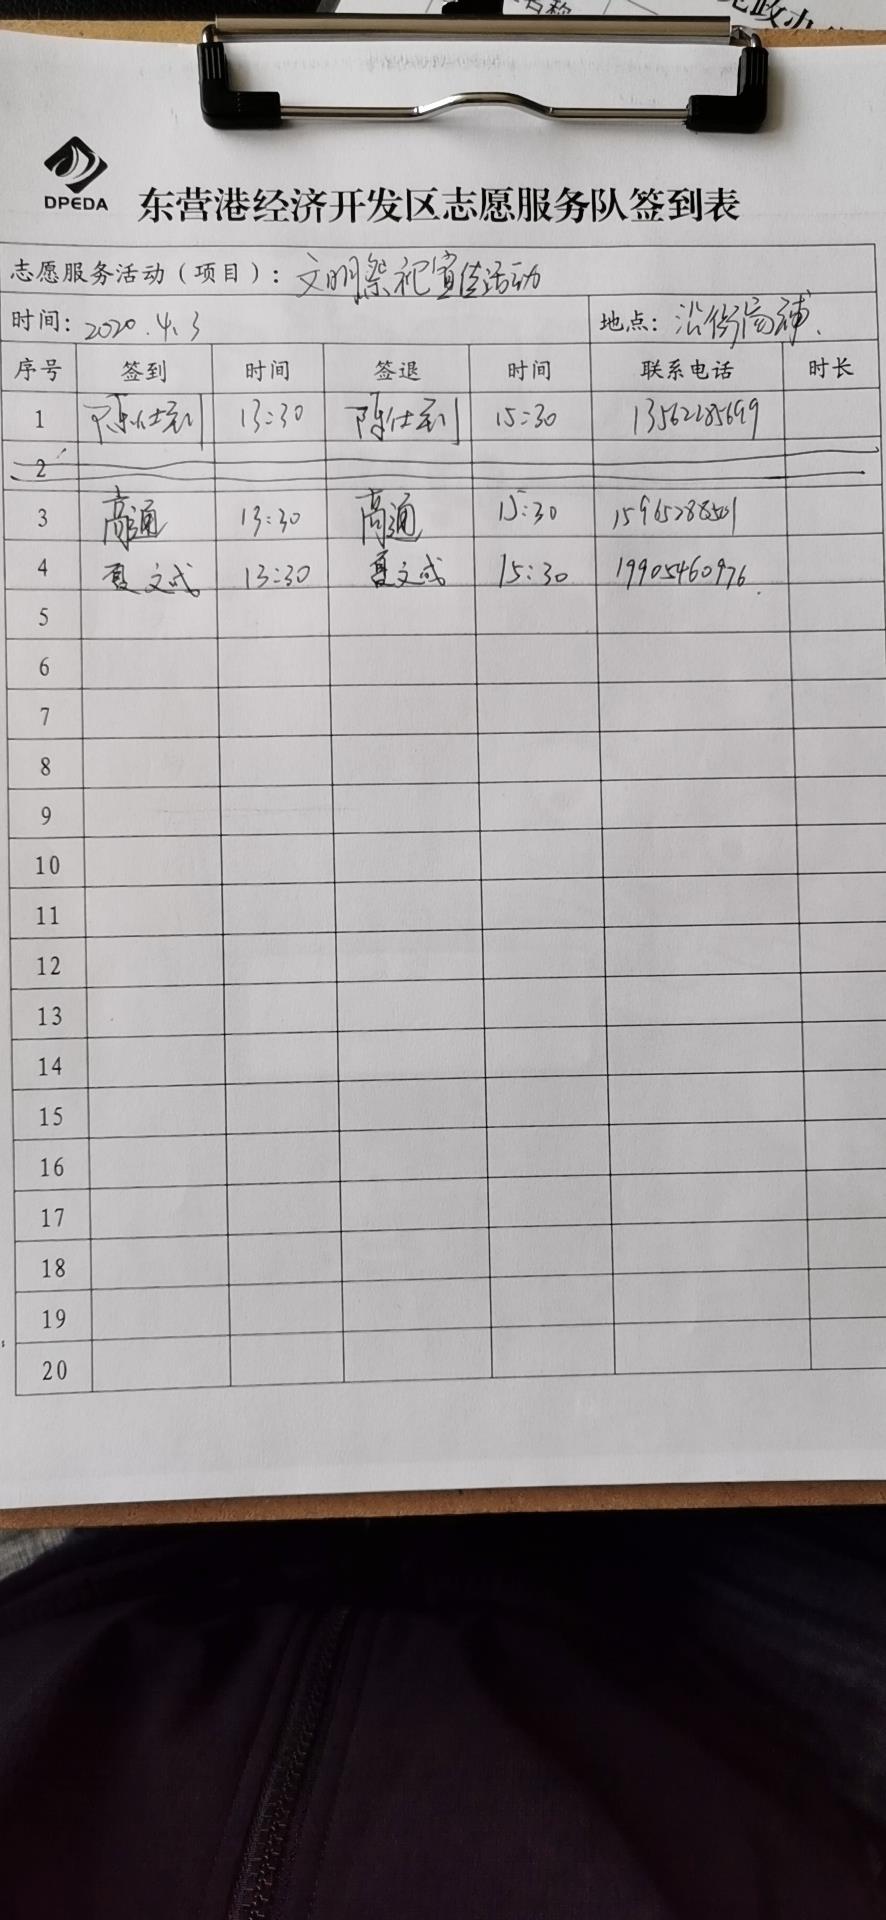 名称
党政办
DPEDA
东营港经济开发区志愿服务队签到表
志愿服务活动（项目）：文明祭祀宣传活动
时间：2020.4.3 地点：沿街商铺.
序号 签到 时间 签退 时间 联系电话 时长
1 陈仕 13:30 陈仕 15:30 13562285699
2
3 高通 13:30 高通 15:30
4 夏文成 13:30 夏文成 15:30 19905460976.
5
6
7
8
9
10
11
12
13
14
15
16
17
18
19
20